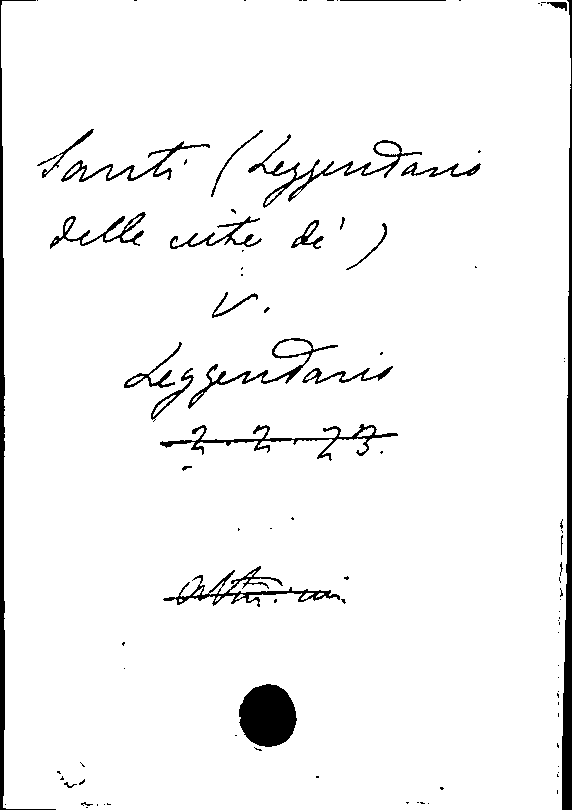 Santi (Leggendario
delle vite de')
V.
Leggendario
2. 2. 23.